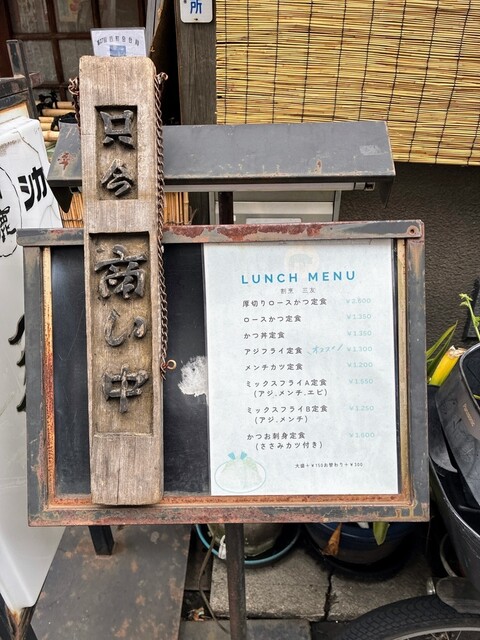 所
只今
商い中
シカ
LUNCH MENU
割烹 三友
厚切りロースかつ定食
ロースかつ定食 ¥1,350
かつ丼定食
アジフライ定食
メンチカツ定食 ¥1,200
ミックスフライA定食
(アジ、メンチ、エビ)
ミックスフライB定食 ¥1,250
(アジ、メンチ)
かつお刺身定食
(ささみカツ付き)